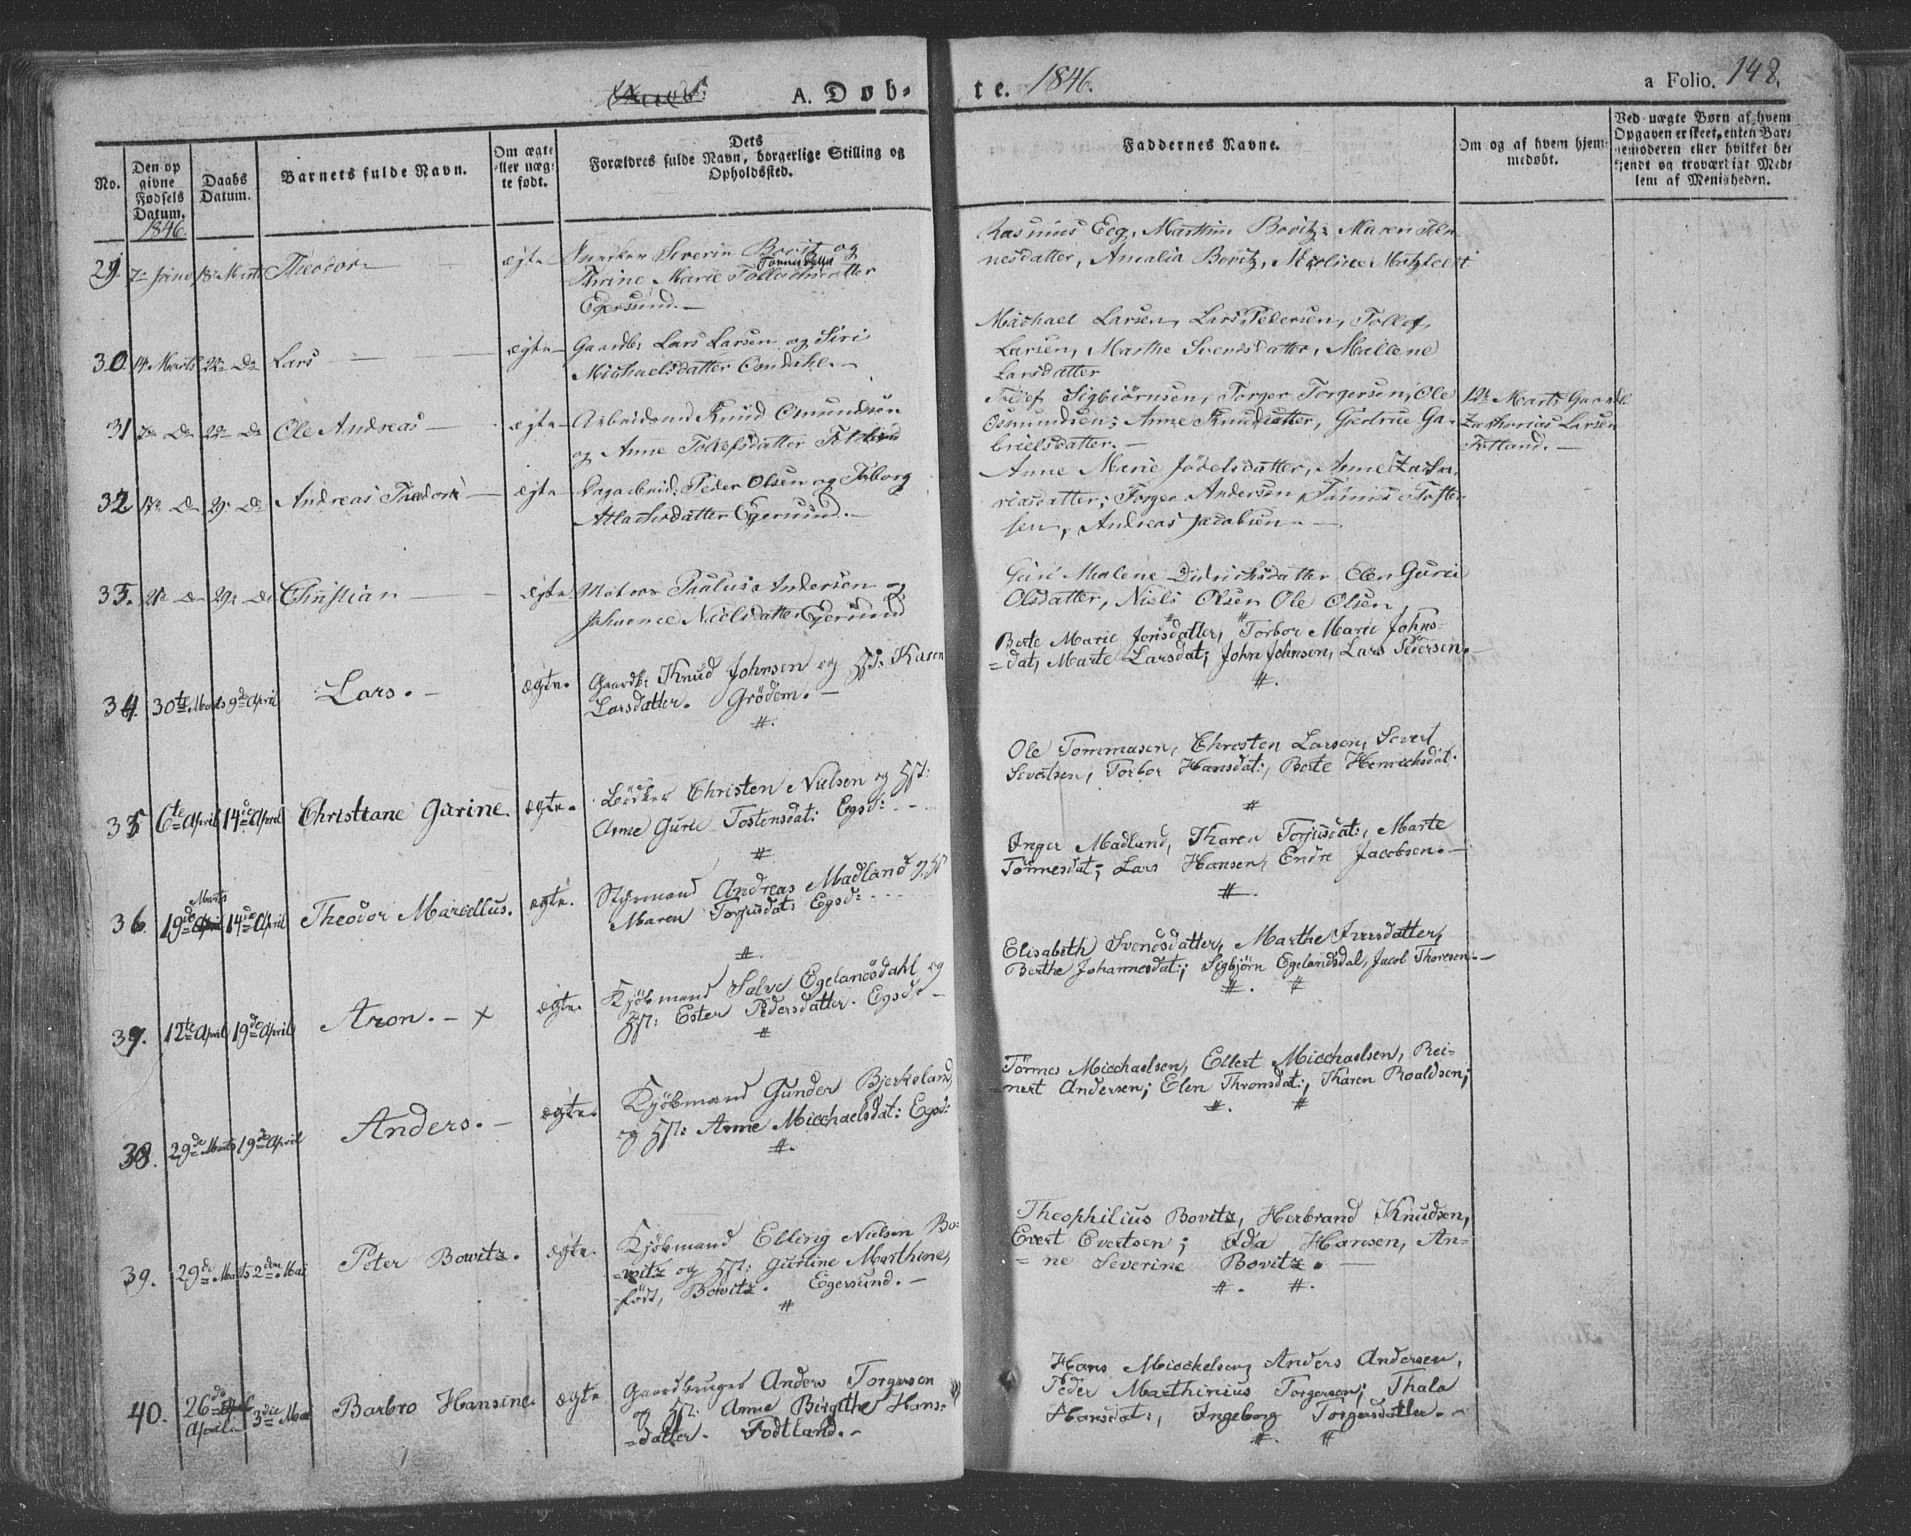 A. Døb-
te. 1846.
a Folio. 148.
No.
Den op
givne
Fødsels
Datum.
1846.
Daabs
Datum.
Barnets fulde Navn.
Om ægte
eller uæg-
te født.
Dets
Forældres fulde Navn, borgerlige Stilling og
Opholdssted.
Faddernes Navne.
Om og af hvem hjem-
medøbt.
Ved uægte Børn af hvem
Opgaven er skeet, enten Bar-
nemoderen eller hvilket be-
kjendt og troværdigt Med-
lem af Menigheden.
29. Theodor ægte Severin Bovitz og
Thrine Marie Tollefsdatter
Egersund.
Rasmus Eeg, Marthin Bovitz, Maren
nesdatter, Amalia Bovitz,
30. 14 Marts 22 Do Lars ægte Gaardb: Lars Larsen og Siri
Michaelsdatter
Michael Larsen, Lars Pedersen, Tollef
Larsen, Marthe Svendsdatter, Mallene
Larsdatter
31 7 Do 22 Do Ole Andreas ægte Arbeidsmd Knud Osmundsen
og Anne Tollefsdatter Fotland
Tollef Sigbiörnsen, Torger Torgersen, Ole
Osmundsen; Anne Knudsdatter, Gjertrue Ga-
brielsdatter.
12 Marts Gaardb.
Zacharias Larsen
Fotland.
32 Do 29 Do Andreas Theodor ægte Peder Olsen og
Egersund.
Anne Marie Jödelsdatter, Anne Zacha-
riasdatter; Torger Andersen,
sen, Andreas Jacobsen.
33. 21 Do 29 Do Christian ægte Matros Paulus Andersen og
Johanne Nielsdatter Egersund
Guri Malene Didrichsdatter Elen Guri
Olsdatter, Niels Olsen Ole Olsen
34. 30te Marts 9de April Lars. ægte. Gaardb: Knud Johnsen og Hst: Karen
Larsdatter. Grödem.
Berte Marie Jonsdatter, Torbor Marie Johns-
=dat, Marte Larsdat; John Johnsen, Lars Pedersen.
35 6te April 14de April Christiane Gurine. ægte. Bödker Christen Nielsen og Hst:
Anne Guri Tostensdat: Egsd:
Ole Tommasen, Christen Larsen, Sivert
Sivertsen, Torbor Hansdat:, Berte Henrichsdat:
36. 19de Marts 14de April Theodor Marcellus. ægte. Styrmand Andreas Madland og Hst
Maren Torjusdat: Egsd:
Inger Madland, Karen Torjusdat:, Marte
Tönnesdat; Lars Hansen, Endre Jacobsen.
37. 12te April 19de April Aron. x ægte. Kjöbmand Salve Egelandsdahl og
Hst: Ester Pedersdatter. Egsd:
Elisabeth Svendsdatter, Marthe Iversdatter,
Berthe Johannesdat:; Sigbjörn Egelandsdal, Jacob Thoresen.
38. 29de Marts 19de April Anders. ægte. Kjöbmand Gunder Bjerkeland
og Hst: Anne Micchaelsdat: Egsd:
Tönnes Micchaelsen, Ellert Micchaelsen, Rei-
nert Andersen; Elen Thronsdat:, Karen Roaldsen;
39. 29de Marts 2den Mai Peter Bowitz. ægte. Kjöbmand Elling Nielsen Bo-
=witz og Hst: Gurine Marthine,
födt, Bowitz. Egersund.
Theophilius Bovitz, Herbrand Knudsen,
Evert Evertsen; Ida Hansen, An-
=ne Severine Bovitz.
40. 26de April 3die Mai Barbro Hansine. ægte Gaardbruger Anders Torgersen
og Hst: Anne Birgithe Hans-
=datter. Fodtland.
Hans Micckelsen, Anders Andersen,
Peder Marthinius Torgersen; Thala
Hansdat:, Ingeborg Torgersdatter.